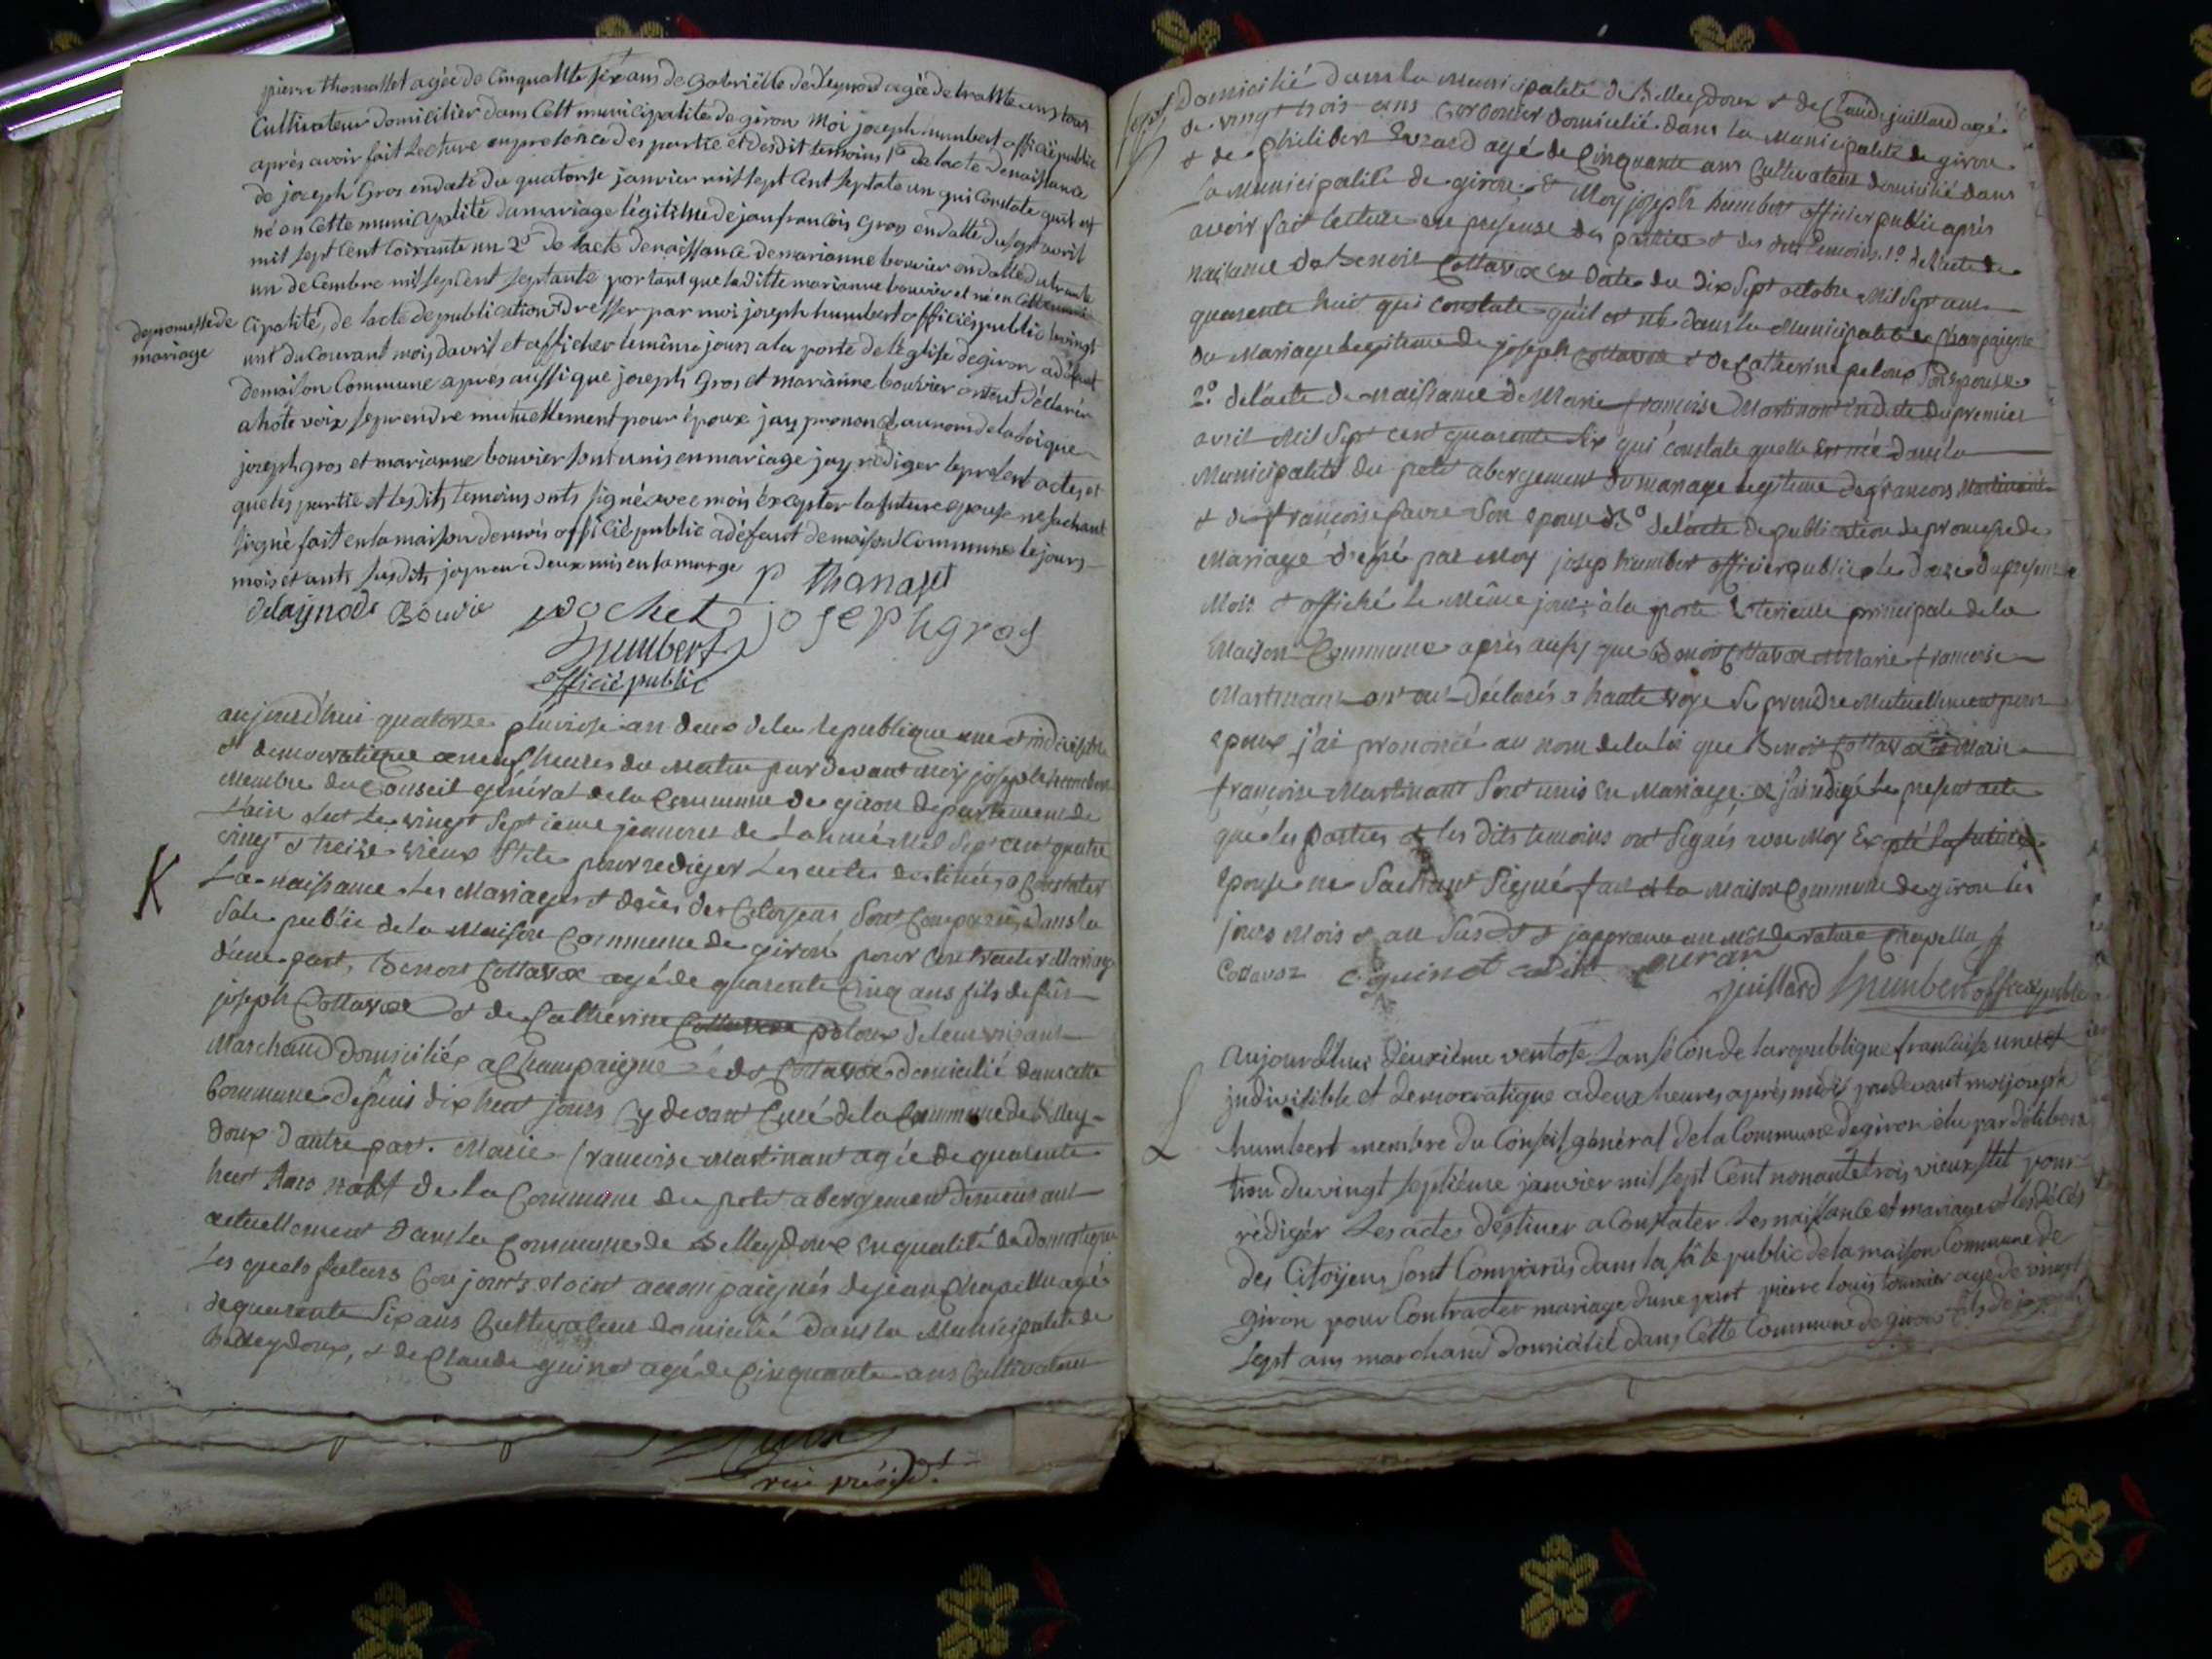 pierre thomasset agée de Cinquante six ans de Gabrielle de Leynod agée de trante ans tous
Cultivateur domicilier dans Cett municipalité de giron Moi joseph humbert officié public
après avoir fait Lecture en presence des partie et desdit temoins 1º de lacte denaissance
de joseph Gros en date du quatorse janvier mil sept Cent septate un qui Constate quil est
né en Cette municipalité du mariage légitime de jean francois Gros en datte du sept avril
mil sept Cent soixante un 2º de lacte denaissance de marianne bouvier en datte du trante
un decembre mil sept Cent septante portant que laditte marianne bouvier et né en Cette muni
depromesse de
mariage
cipalité, de lacte de publication dresser par moi joseph humbert officié public le vingt
unt du Courant mois davril et afficher le même jours a la porte de léglise de giron a défaut
demaison Commune apres aussi que joseph Gros et marianne bouvier onteut déclarér
a hote voix se prendre mutuellement pour époux jay prononcé au nom dela loi que
joseph gros et marianne bouvier sont unis en mariage jay rédiger le present actes et
que les partie et lesdits temoins onts signé avec mois excepter la future epouse ne sachant
signé fait en la maison de moi officié public a défaut de maison Commune le jours
mois et ants susdits japreuve deux mis en la marge P thomaset
delaynode Bouvie pochet joseph gros
humbert
officié public
aujourd'hui quatorze pluviose an deux dela Republique une & indivisible
& democratique a neuf heures du Matin par devant Moy joseph humbert
Membre du Conseil général de la Commune de giron departement de
Lain elut le vingt sept ieme janvier de Lannée Mil Sept cent quatre
vingt & treize vieux Stile pour rediger Les actes destinés a Constater
K
La naissance les Mariages & décès des Citoyens Sont Comparus dans la
Sale public de la Maison Commune de giron pour Contracter Mariage
d'une part, Benoit Collavoz agé de quarente Cinq ans fils de fût
joseph Collavoz & de Catherine Collavoz peloux de leur vivant
Marchand domiciliés a Champaigne & Collavoz domicilié dans cette
Commune depuis dix heut jours Cy devant Curé de la Commune de Belley-
doux d'autre part. Marie francoise Martinant agée de quarente
heut Ans natif de la Commune du petit abergement demeurant
actuellement dans la Commune de Belleydoux en qualité de domestique
Les quels futurs Conjoints etoint accompaignés de jean Chapellu agé
de quarente Six ans Cultivateur domicilié dans la Municipalité de
Belleydoux, & de Claude guinet agé de Cinquante ans Cultivateur
vice présid.t
Domicilié dans la Municipalité de Belleydoux & de Claude juillard agé
de vingt trois ans Cordonier domicilié dans la Municipalité de giron
& de philibert Evrard agé de Cinquante ans Cultivateur domicilié dans
La Municipalité de giron & Moy joseph humbert officier public après
avoir fait lecture en presense des parties & des dits temoins. 1º de l'acte de
naissance de Benoit Collavoz en date du dix Sept octobre Mil Sept cent
quarente huit qui constate qu'il est né dans la Municipalité de Champaigne
du Mariage Legitime de joseph Collavoz & de Catherine peloux Son epouse
2º de l'acte de naissance de Marie francoise Martinant en date du premier
avril Mil Sept cent quarente Six qui constate quelle est née dans la
Municipalité du petit abergement du mariage legitime de francois Martinant
& de francoise favre Son epouse & 3º de l'acte de publication de promesse de
Mariage dressé par Moy josep humbert officier public le douze du present
Mois & affiché le Même jour, a la porte Exterieure principale de la
Maison Commune après aussy que Benoit Collavoz & Marie francoise
Martinant ont eut déclarés a haute voye de prendre Mutuellement pour
epoux j'ai prononcé au nom de la loi que Benoit Collavoz & Marie
francoise Martinant Sont unis en Mariage & j'ai redigé le present acte
que les parties & les dits temoins ont Signés avec Moy Expté la future
Epouse ne Sachant Signé fait a la Maison Commune de giron les
jours Mois & an Susdits japprouve
Collavoz C guinet
juillard humbert officié public
Aujourdhui deuxième ventose Lan séconde la republique francaise une et
L
indivisible et democratique a deux heures après midi pardevant moi joseph
humbert membre du Conseil général dela Commune de giron élu par délibera
tion du vingt septième janvier mil sept Cent nonante trois vieux stil pour
rédigér Les actes destiner a Constater Les naissance et mariage et les décés
des Citoyens sont Comparus dans la sâle public de la maison Commune de
giron pour Contracter mariage dune part pierre louis tournier agé de vingt
sept ans marchand domicilié dans Cette Commune de giron fils de joseph